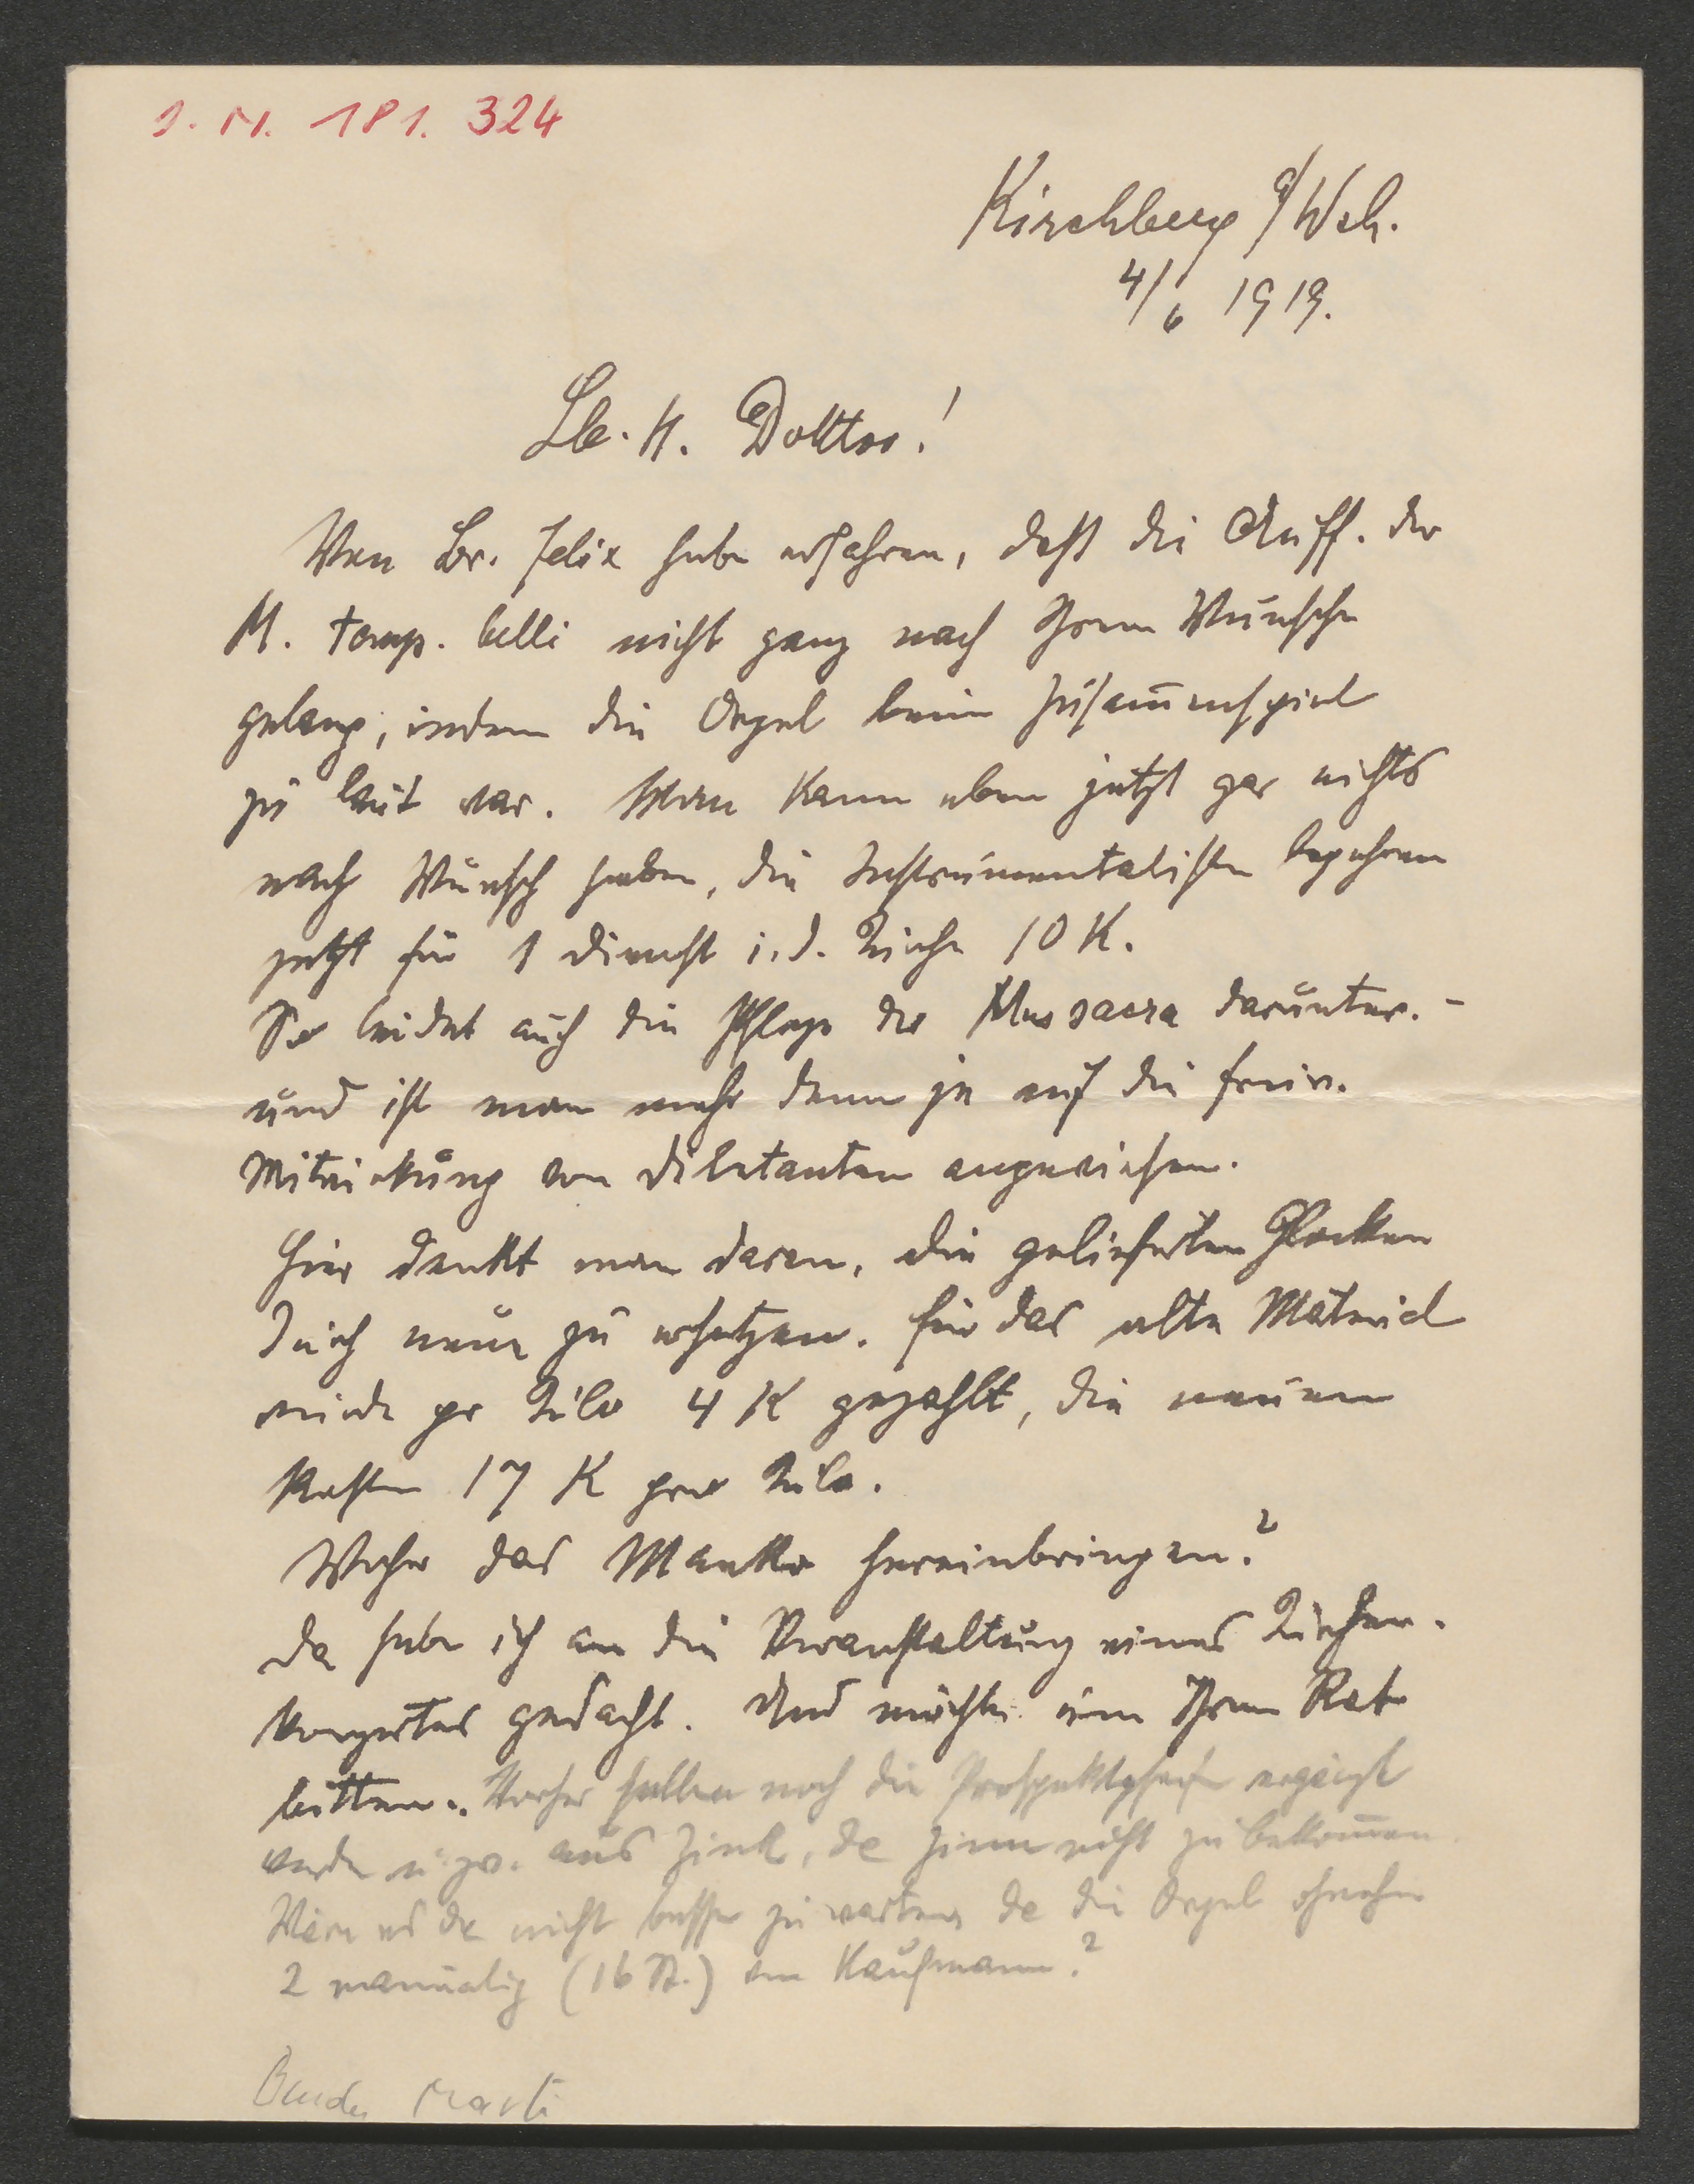 I. N. 181. 324
Kirchberg a/Wch.
4/6 1919.
Lb. H. Doktor!
Von Br. Felix habe erfahren, daß die Auff. der
M. temp. belli nicht ganz nach Ihrem Wunsche
gelang, indem die Orgel beim Zusam̅enspiel
zu laut war. Man kann eben jetzt gar nichts
nach Wunsch haben, die Instrumentalisten begehren
jetzt für 1 Dienst i. d. Kirche 10 K.
So leidet auch die Pflege der Mus sacra darunter. –
und ist man mehr denn je auf die freiw.
Mitwirkung von Diletanten angewiesen.
Hier denkt man daran, die gelieferten Glocken
durch neue zu ersetzen. Für das alte Material
wurde per Kilo 4 K gezahlt, die neuen
kosten 17 K pro Kilo.
Woher das Manko hereinbringen?
Da habe ich an die Veranstaltung eines Kirchen-
konzertes gedacht. Und möchte um Ihren Rat
bitten. Vorher sollen noch die Prospektpfeifen ergänzt
werden u. zw. aus Zink, da Zinn nicht zu bekom̅en
Wäre es da nicht besser zu warten da die Orgel ohnehin
2 manualig (16 R.) von Kaufmann?